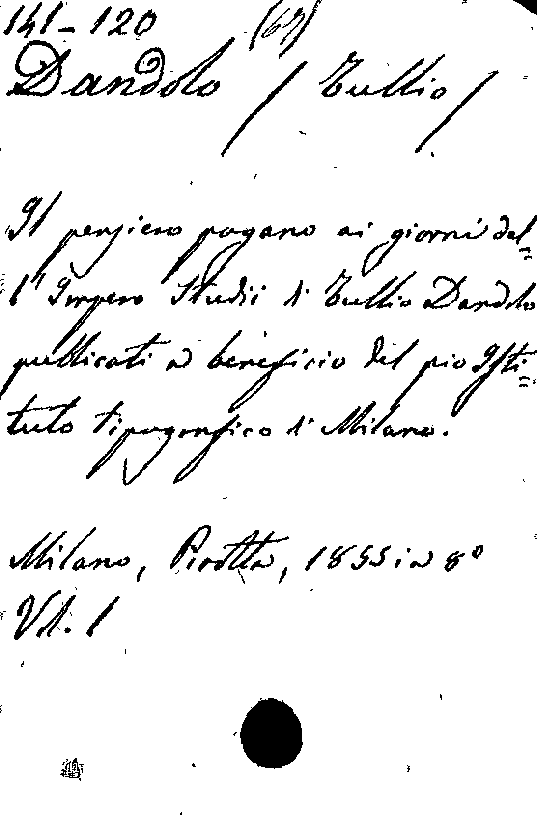 141-120 (67)
Dandolo / Tullio /
Il pensiero pagano ai giorni del=
l'Impero Studii di Tullio Dandolo
pubblicati a beneficio del pio Isti=
tuto tipografico di Milano.
Milano, Pirotta, 1855 in 8°
Vol. 1